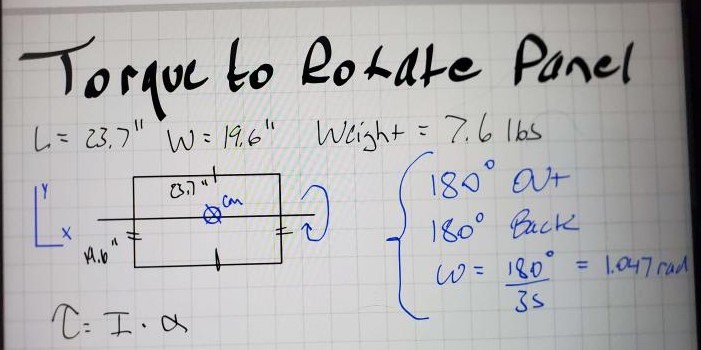 Torque to Rotate Panel
L = 23.7" W = 19.6" Weight = 7.6 lbs
Y
X
23.7"
cm
19.6"
180° Out
180° Back
ω = 180° / 3s = 1.047 rad
τ = I · α